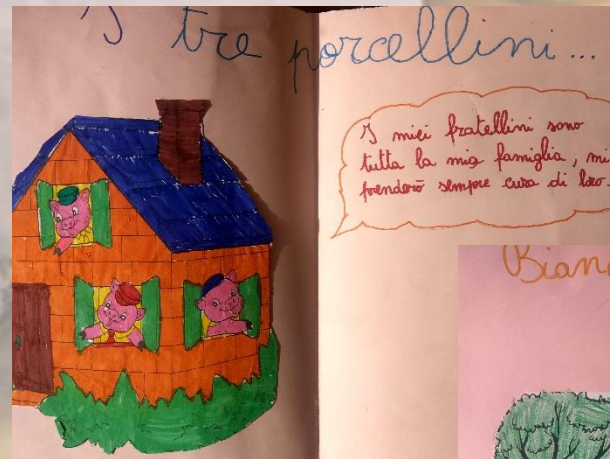 I tre porcellini...
I miei fratellini sono
tutta la mia famiglia, mi
prenderò sempre cura di loro.